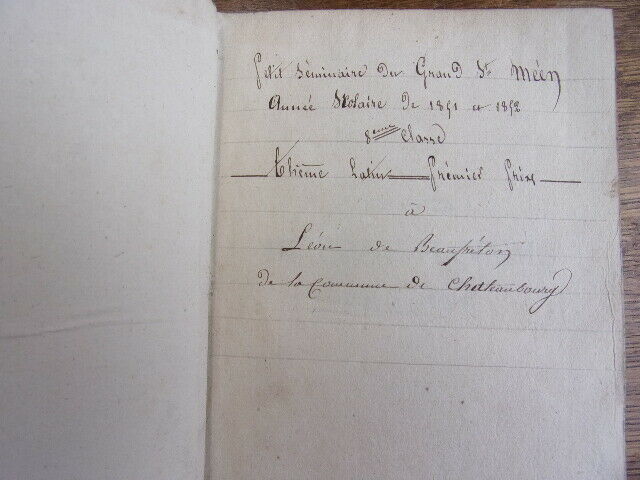 Petit Séminaire du Grand St Méen
Année Scolaire de 1851 et 1852
8eme Classe
Thême Latin Prémier Prix
à
Léon de Beaufréton
de la Commune de Chateaubourg